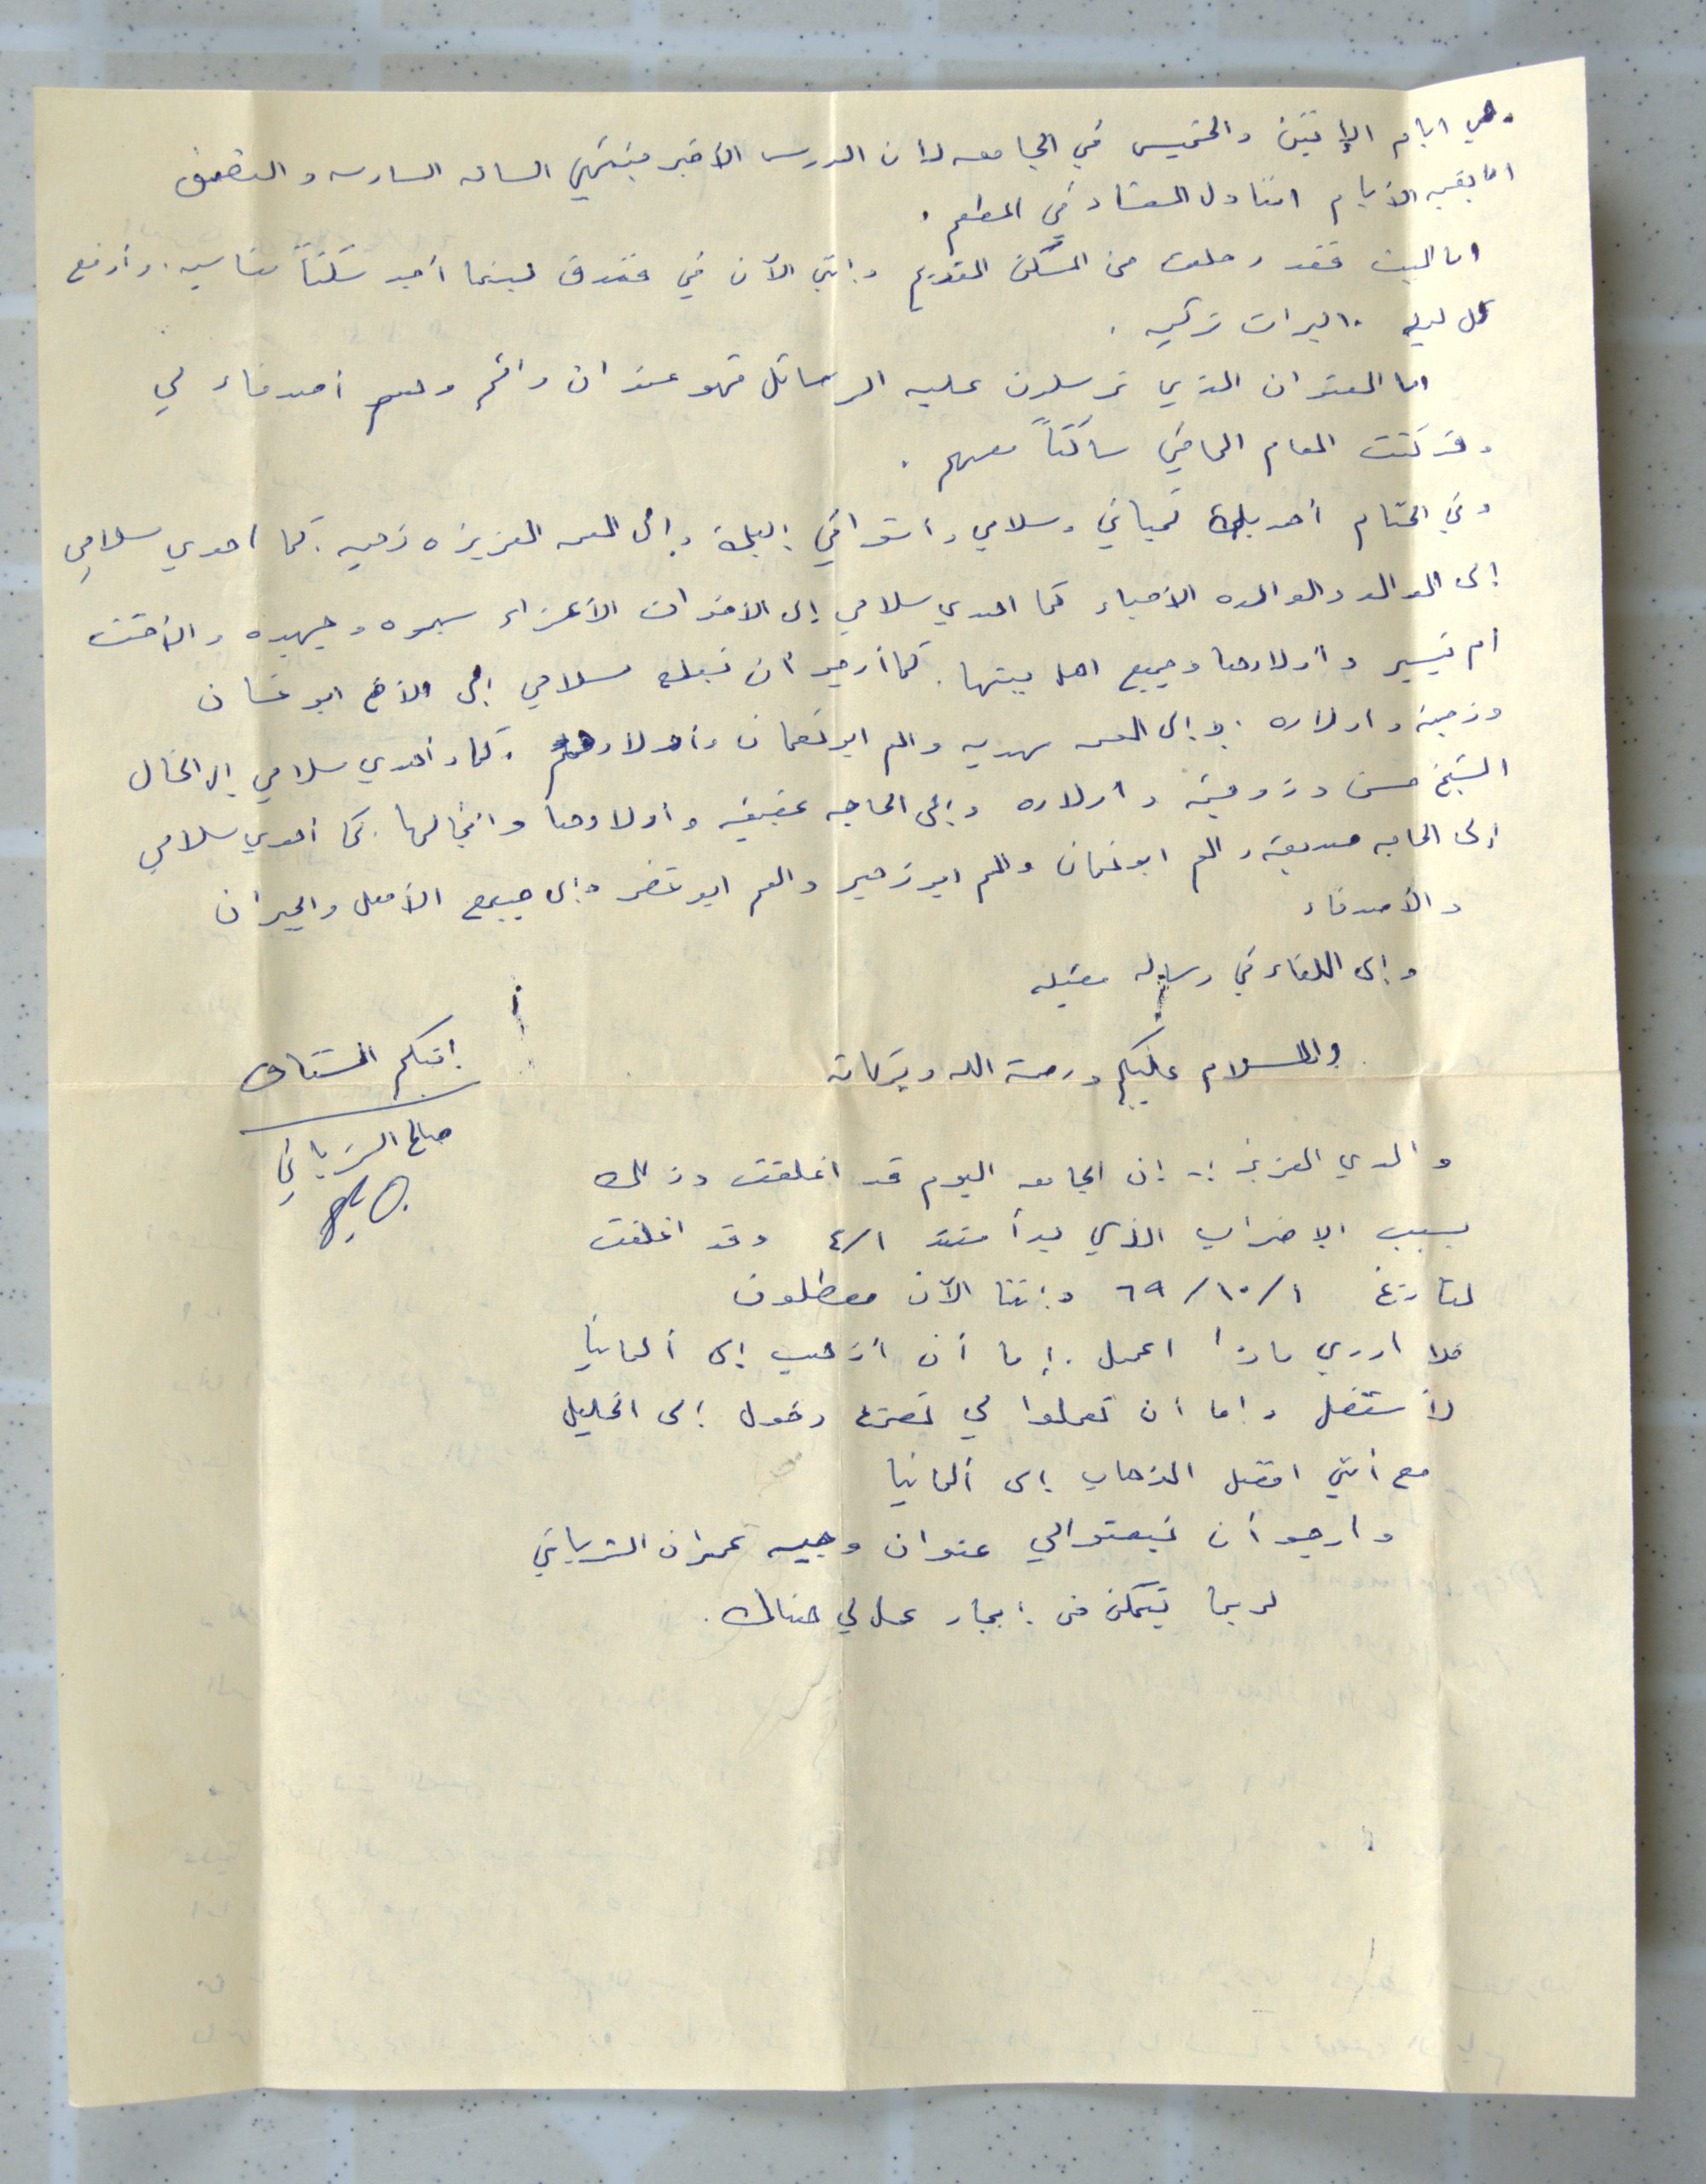 وهي ايام الإثنين والخميس في الجامعه لان الدرس الأخير ينتهي الساعه السادسه والنصف
اما بقيه الأيام اتناول العشاء في المطعم .
اما البيت فقد رحلت من المسكن القديم وانني الآن في فندق لبينما أجد سكناً مناسبه . وأدفع
كل ليله ١٠ ليرات تركيه .
اما العنوان الذي ترسلون عليه الرسائل فهو عنوان دائم وهم أصدقاء لي
وقد كنت العام الماضي ساكناً معهم .
وفي الختام أهديك تحياتي وسلامي وأشواقي إليك وإلى العمه العزيزه زهيه . كما أهدي سلامي
إلى الوالد والوالده الأحباء كما اهدي سلامي إلى الأخوات الأعزاء سموه وجهيده والأخت
أم تيسير وأولادها وجميع اهل بيتها . كما أرجو أن تبلغ سلامي إلى الأخ ابو غسان
وزوجته واولاده . وإلى العمه مهديه والعم ابو نعمان وأولادهم . كما وأهدي سلامي إلى الخال
الشيخ حسن وزوجته وأولاده وإلى الحاجه عفيفه وأولادها وانجالها . كما أهدي سلامي
إلى الحاجه صديقه والعم ابو عثمان والعم ابو زهير والعم ابو خضر وإلى جميع الأهل والجيران
والأصدقاء
وإلى اللقاء في رساله مقبله
والسلام عليكم ورحمة الله وبركاته
إبنكم المشتاق
صالح الشرباتي
والدي العزيز :- إن الجامعه اليوم قد اغلقت وذلك
بسبب الاضراب الذي بدأ منذ ٤/١ وقد اغلقت
لتاريخ ٦٩/١٠/١ وإننا الآن معطلون
فلا ادري ماذا اعمل . إما أن أذهب إلى ألمانيا
لأشتغل وإما أن تعملوا لي تصريح دخول إلى الخليل
مع أنني افضل الذهاب إلى ألمانيا
وارجو أن تبعثوا لي عنوان وجيه عمران الشرباتي
لربما يتمكن من إيجاد عمل لي هناك .